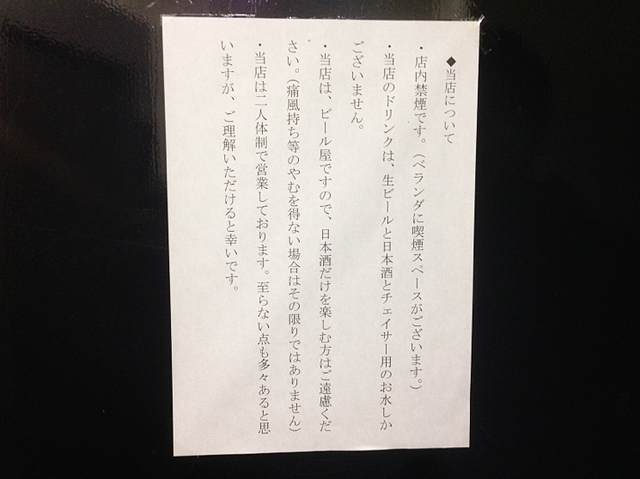 ◆当店について
・店内禁煙です。(ベランダに喫煙スペースがございます。)
・当店のドリンクは、生ビールと日本酒とチェイサー用のお水しか
ございません。
・当店は、ビール屋ですので、日本酒だけを楽しむ方はご遠慮くだ
さい。(痛風持ち等のやむを得ない場合はその限りではありません)
・当店は二人体制で営業しております。至らない点も多々あると思
いますが、ご理解いただけると幸いです。